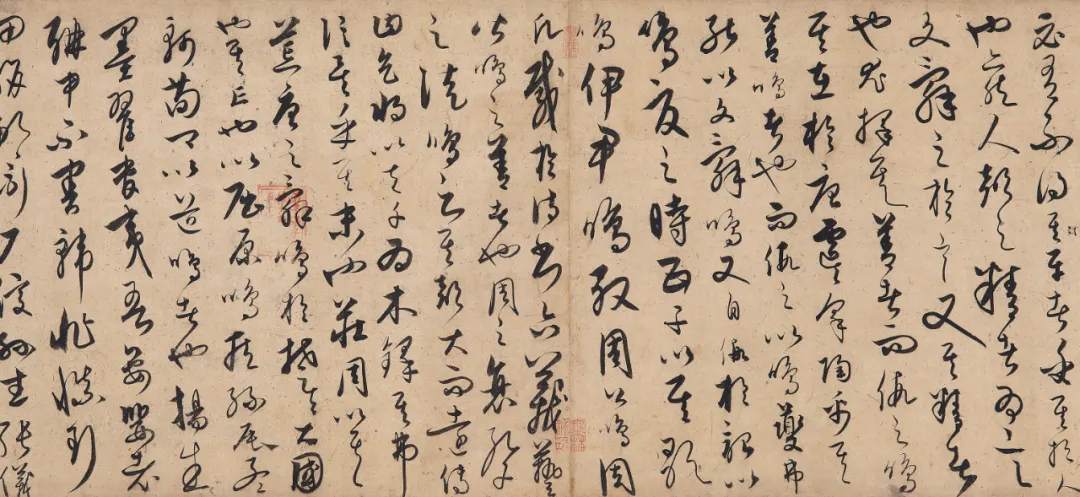 必有不得其平者乎其於人
也亦然人聲之精者為言
文辭之於言又其精者
也尤擇其善者而假之鳴
其在於唐虞咎陶禹其
善鳴者也而假之以鳴夔弗
能以文辭鳴又自假於韶以
鳴夏之時五子以其歌
鳴伊尹鳴殷周公鳴周
凡載於詩書六藝
皆鳴之善者也周之衰孔子
之徒鳴之其聲大而遠傳
曰天將以夫子為木鐸其弗
信矣乎其末也莊周以其
荒唐之辭鳴於楚大國
也其亡也以屈原鳴臧孫辰孟
軻荀卿以道鳴者也揚朱
墨翟管夷吾晏嬰老
聃申不害韓非慎到
田駢鄒衍尸佼孫武張儀